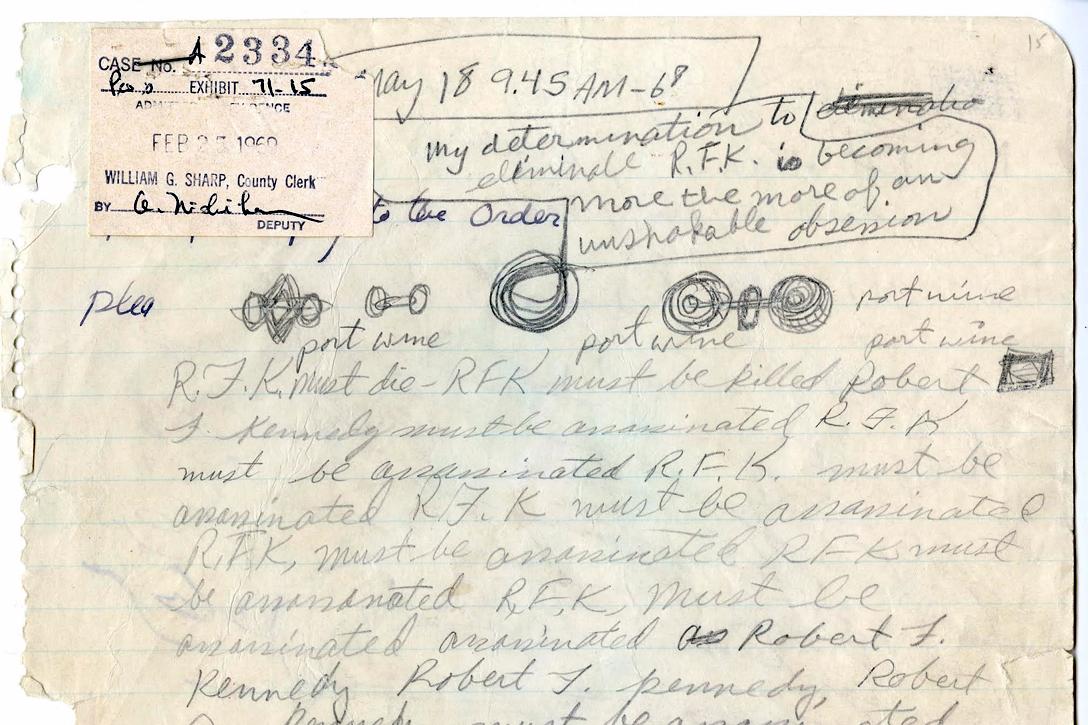 15
CASE No. A 2334
Peo's EXHIBIT 71-15
ADMITTED EVIDENCE
FEB 25 1969
WILLIAM G. SHARP, County Clerk
BY
DEPUTY
May 18 9.45 AM-68
my determination to
eliminate R.F.K. is becoming
more the more of an
unshakable obsession
to the Order
plea
port wine
port wine port wine port wine
R.F.K. must die - RFK must be killed Robert
F. Kennedy must be assassinated R.F.K
must be assassinated R.F.K. must be
assassinated R.F.K must be assassinated
R.F.K, must be assassinated RFK must
be assassinated R,F,K, Must be
assassinated assassinated Robert F.
Kennedy Robert F. Kennedy, Robert
must be